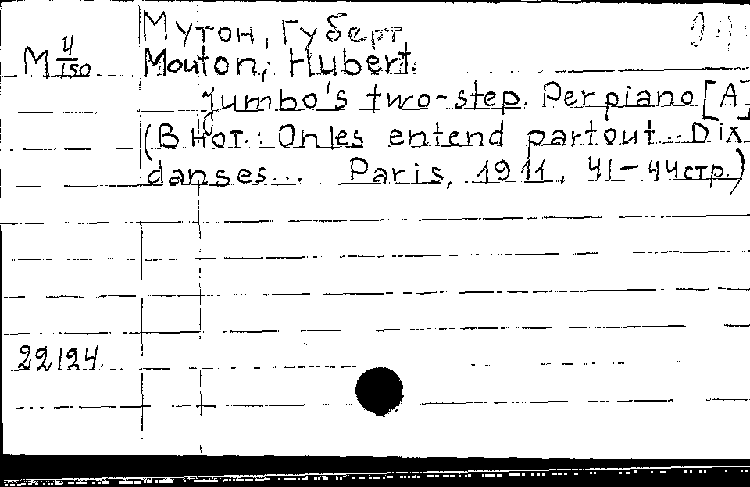 Мутон, Губерт
М 4/150 Mouton, Hubert.
Jumbo's two-step. Per piano [A]
(В нот.: On les entend partout... Dix
danses... Paris, 1911, 41-44стр.)
22124